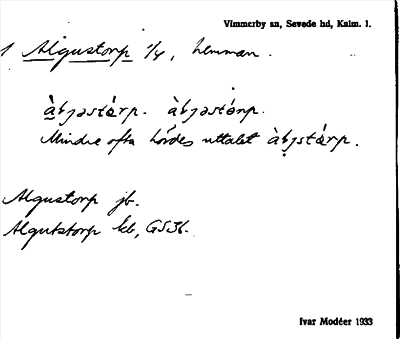 Vimmerby sn, Sevede hd, Kalm. l.
1 Algustorp 1/4, hemman.
àbɟəstá̀rp. àbɟəstórp.
Mindre ofta hördes uttalet àbɟstá̀rp.
Algustorp jb.
Algutstorp kb, GS36.
Ivar Modéer 1933